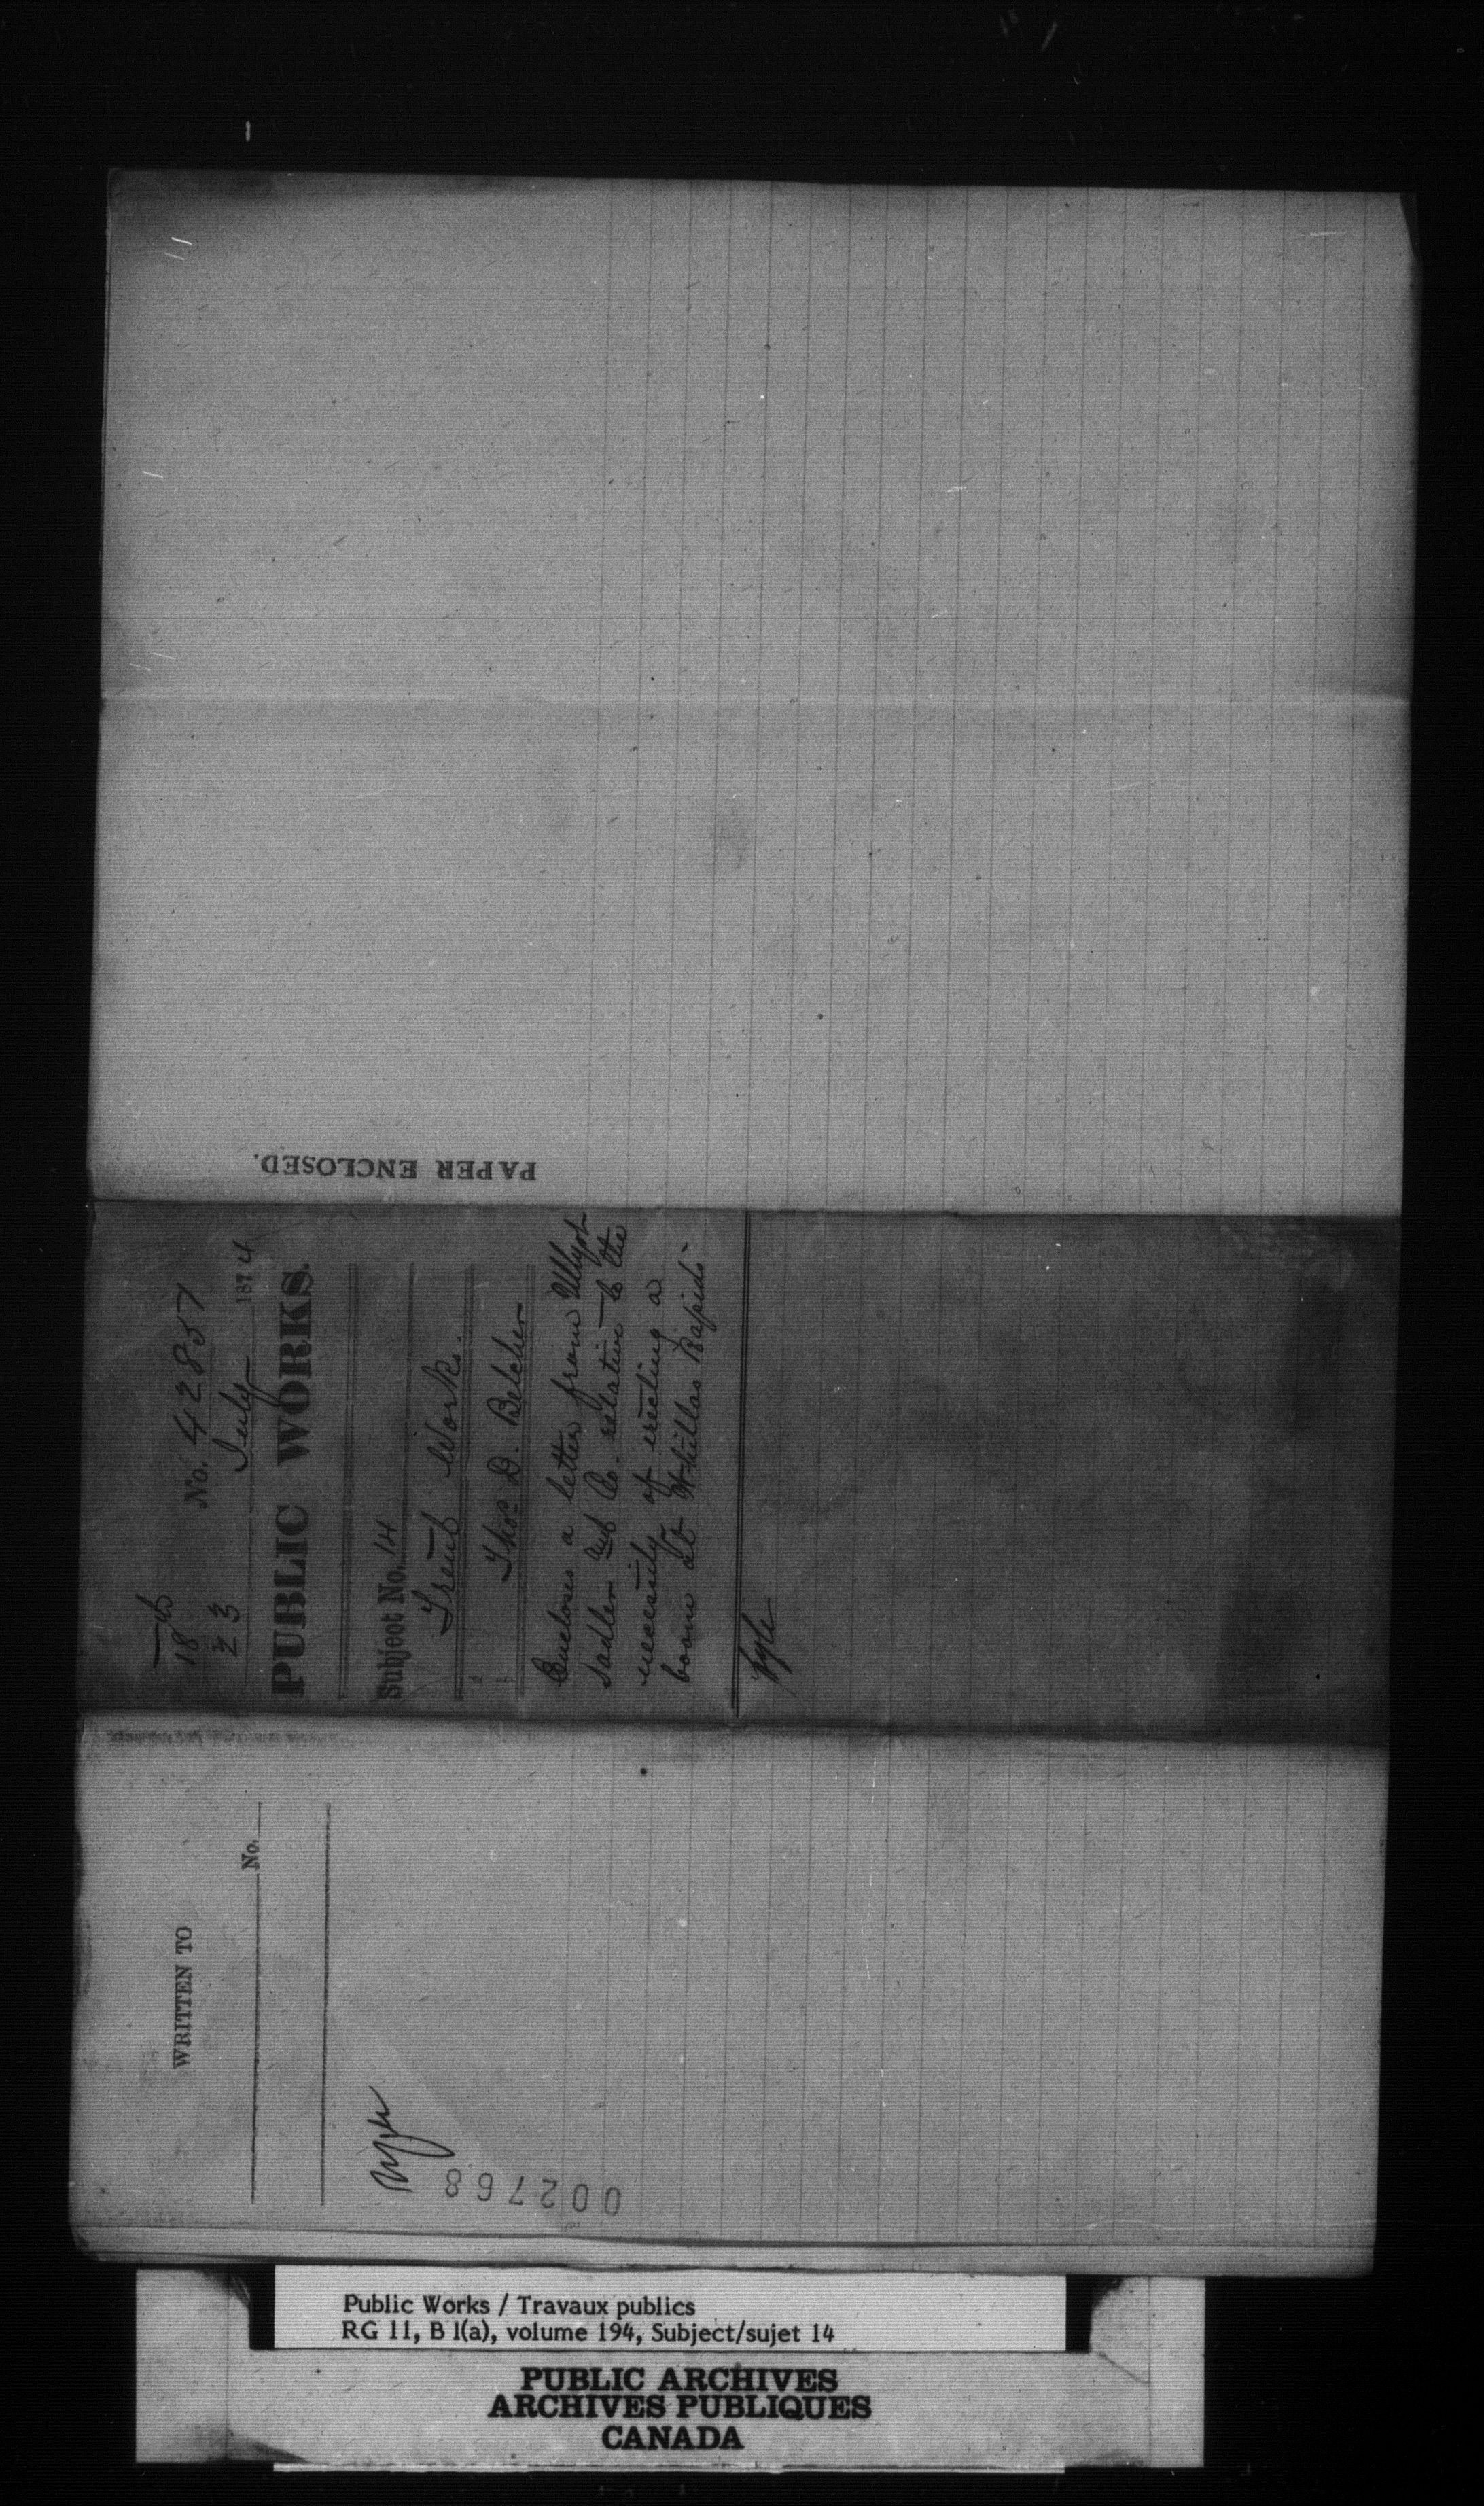 PAPER ENCLOSED.
18 No. 42857
23 July 1874
PUBLIC WORKS.
Subject No. 14
Trent Works.
Thos. D. Belcher
Encloses a letter from Ullyot
Sadler and Co. relative to the
necessity of erecting a
boom at Whitlas Rapids
fyle
WRITTEN TO
No.
002768
Public Works / Travaux publics
RG 11, B 1(a), volume 194, Subject/sujet 14
PUBLIC ARCHIVES
ARCHIVES PUBLIQUES
CANADA